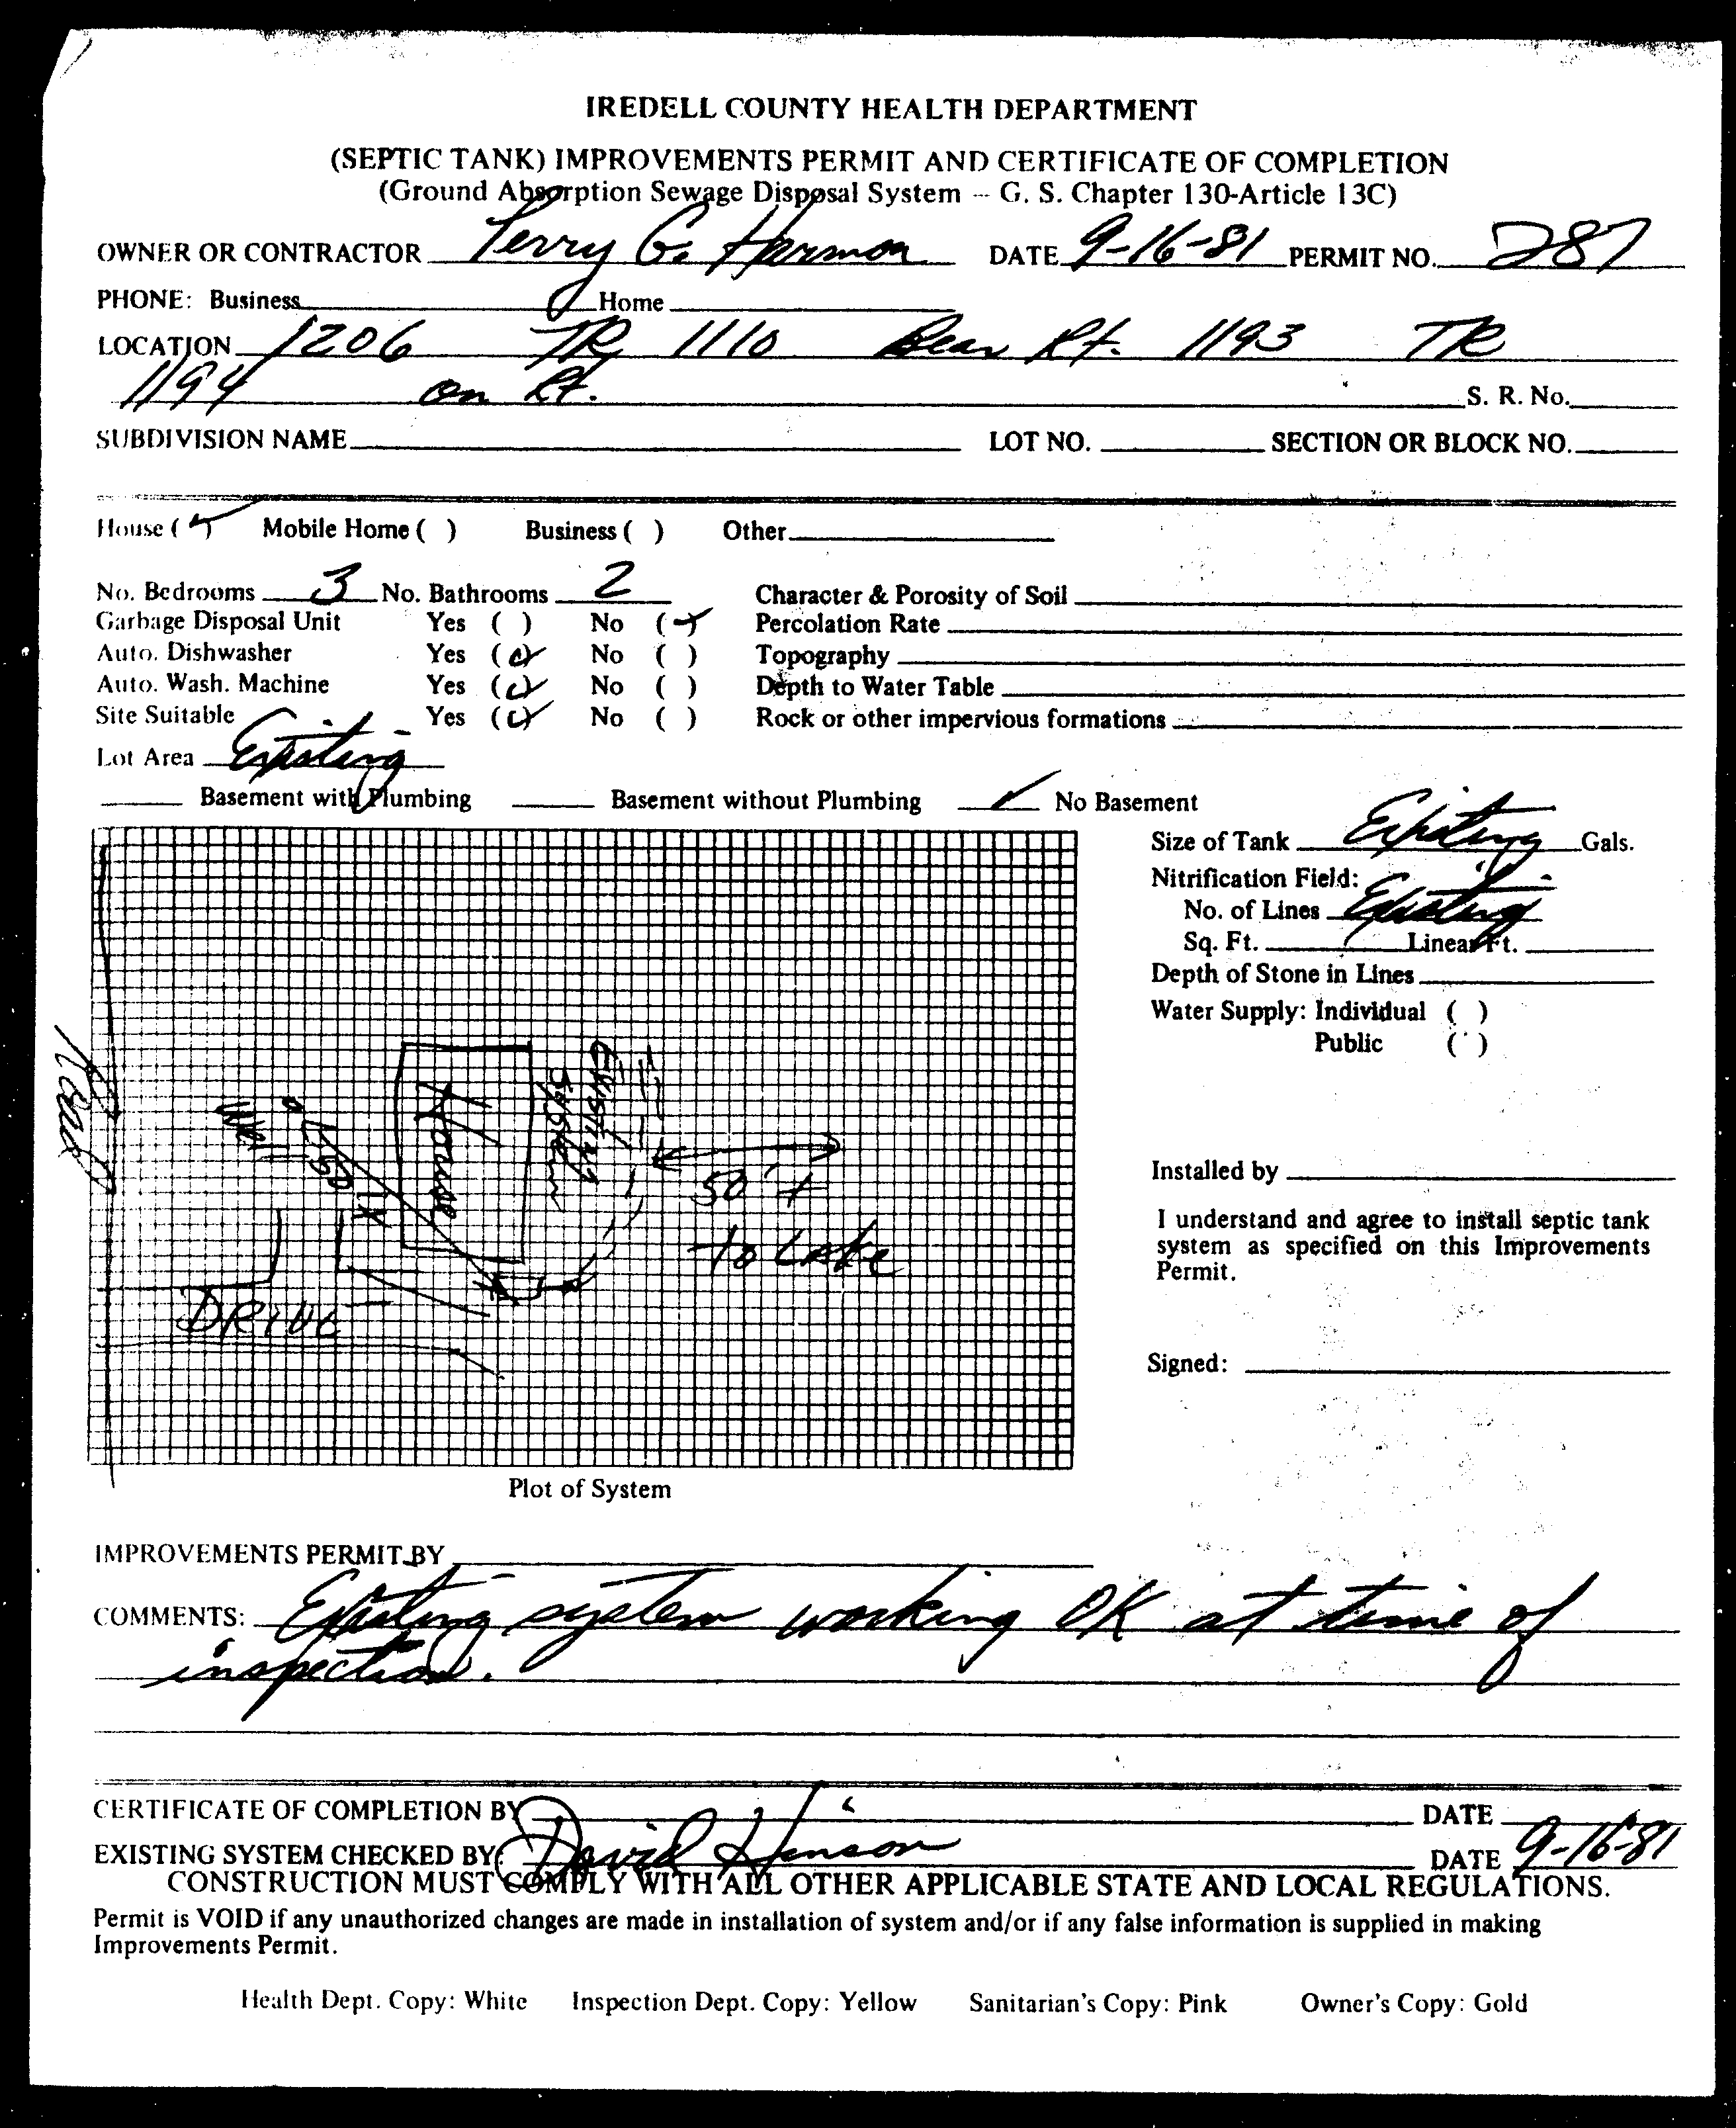 IREDELL COUNTY HEALTH DEPARTMENT
(SEPTIC TANK) IMPROVEMENTS PERMIT AND CERTIFICATE OF COMPLETION
(Ground Absorption Sewage Disposal System -- G. S. Chapter 130-Article 13C)
OWNER OR CONTRACTOR Terry G. Harmon DATE 9-16-81 PERMIT NO. 287
PHONE: Business Home
LOCATION 1206 TR 1110 Bear Rt. 1193 TR
1194 on Rt. S. R. No.
SUBDIVISION NAME LOT NO. SECTION OR BLOCK NO.
House (✓) Mobile Home ( ) Business ( ) Other
No. Bedrooms 3 No. Bathrooms 2 Character & Porosity of Soil
Garbage Disposal Unit Yes ( ) No (✓) Percolation Rate
Auto. Dishwasher Yes (✓) No ( ) Topography
Auto. Wash. Machine Yes (✓) No ( ) Depth to Water Table
Site Suitable Yes (✓) No ( ) Rock or other impervious formations
Lot Area Existing
Basement with Plumbing Basement without Plumbing ✓ No Basement
Size of Tank Existing Gals.
Nitrification Field:
No. of Lines Existing
Sq. Ft. Linear Ft.
Depth of Stone in Lines
Water Supply: Individual ( )
Public ( )
Road
Well
House
Existing
System
50'+
to Lake
DRIVE
Installed by
I understand and agree to install septic tank
system as specified on this Improvements
Permit.
Signed:
Plot of System
IMPROVEMENTS PERMIT BY
COMMENTS: Existing system working OK at time of
inspection.
CERTIFICATE OF COMPLETION BY DATE
EXISTING SYSTEM CHECKED BY: David Hinson DATE 9-16-81
CONSTRUCTION MUST COMPLY WITH ALL OTHER APPLICABLE STATE AND LOCAL REGULATIONS.
Permit is VOID if any unauthorized changes are made in installation of system and/or if any false information is supplied in making
Improvements Permit.
Health Dept. Copy: White Inspection Dept. Copy: Yellow Sanitarian's Copy: Pink Owner's Copy: Gold